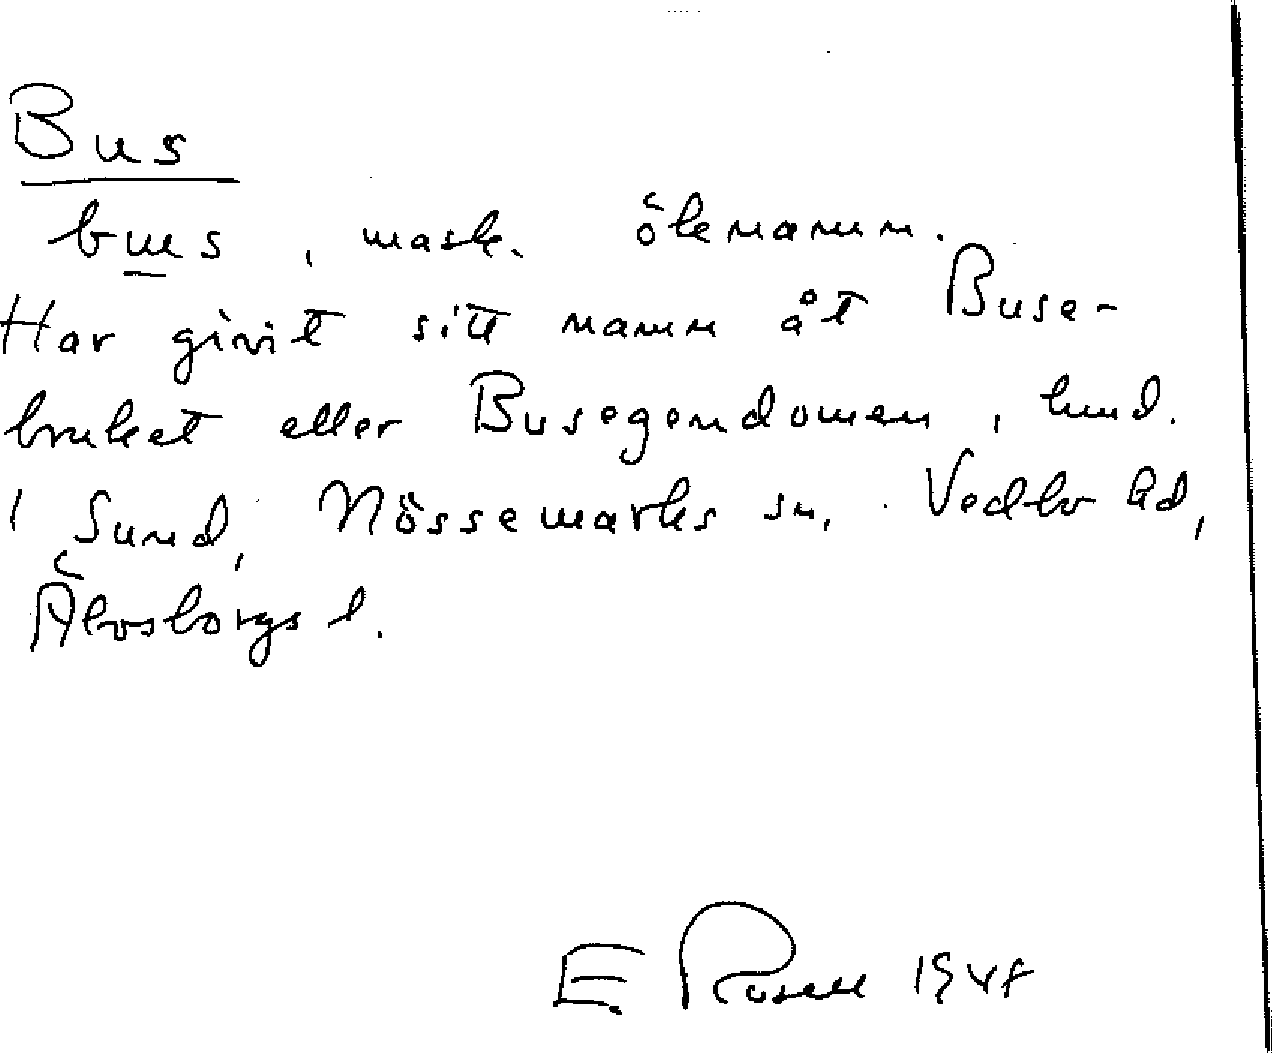 Bus
bus, mask. öknamn.
Har givit sitt namn åt Buse-
bruket eller Busegendomen, hmd.
i Sund, Nössemarks sn, Vedbo hd,
Älvsborgs l.
E. Rosell